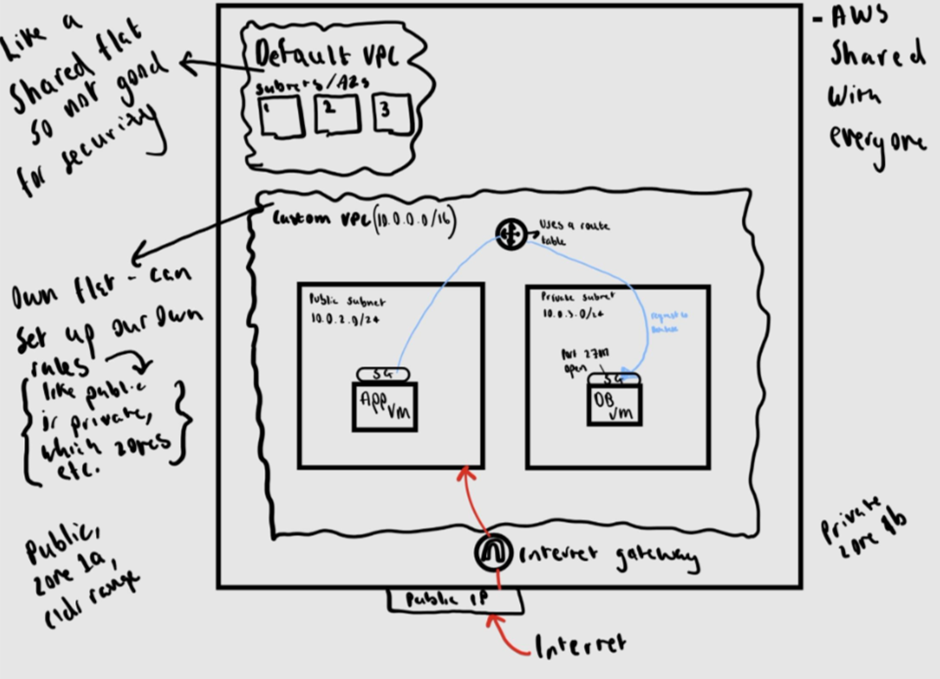 Like a
shared flat
so not good
for security
Default VPC
subnets/AZs
1
2
3
- AWS
Shared
with
everyone
Custom VPC (10.0.0.0/16)
Uses a route
table
Own flat - can
set up our own
rules
like public
or private,
which zones
etc.
Public subnet
10.0.2.0/24
SG
App
VM
Private subnet
10.0.3.0/24
request to
Port 27017
open
SG
DB
VM
Public,
zone 1a,
cidr range
Private
zone 1b
Internet gateway
Public IP
Internet